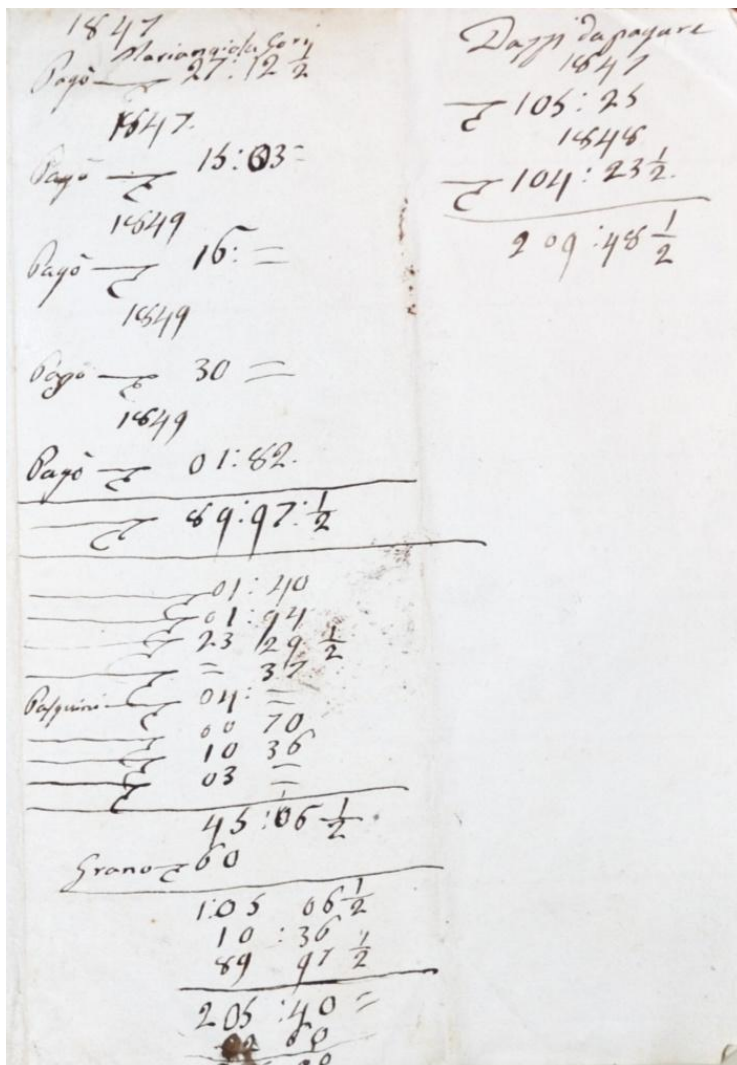 1847
Mariangiola Gori
Pagò 27:12 1/2
1847.
Pagò 15:03=
1849
Pagò 16:=
1849
Pagò 30 =
1849
Pagò 01:82.
89:97:1/2
01:40
01:94
23 29 1/2
= 37
Pasquini 04:=
00 70
10 36
03 =
45:06 1/2.
Grano 60
1:05 06 1/2
10:36
89 97 1/2
205:40=
60
Dazzi da pagare
1847
105:25
1848
104:23 1/2.
209:48 1/2